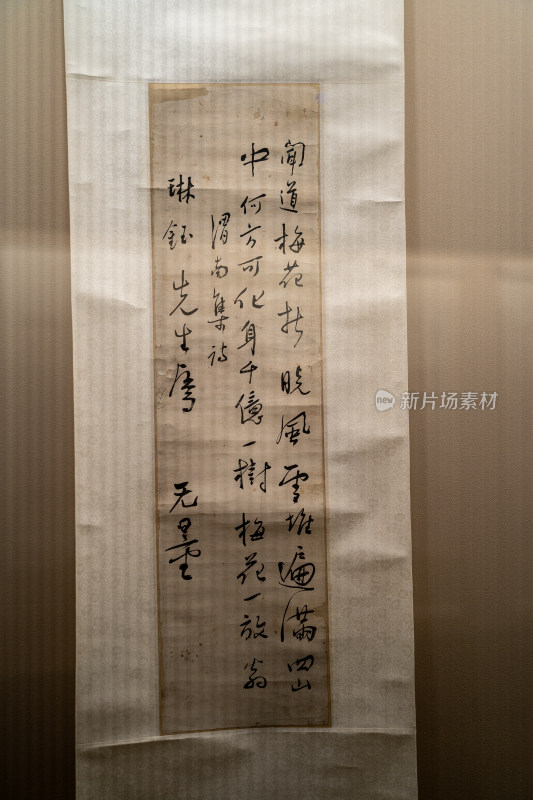 聞道梅花拆曉風雪堆遍滿四山
中何方可化身千億一樹梅花一放翁
渭南集詩
琳鈺先生屬 无量
new 新片场素材